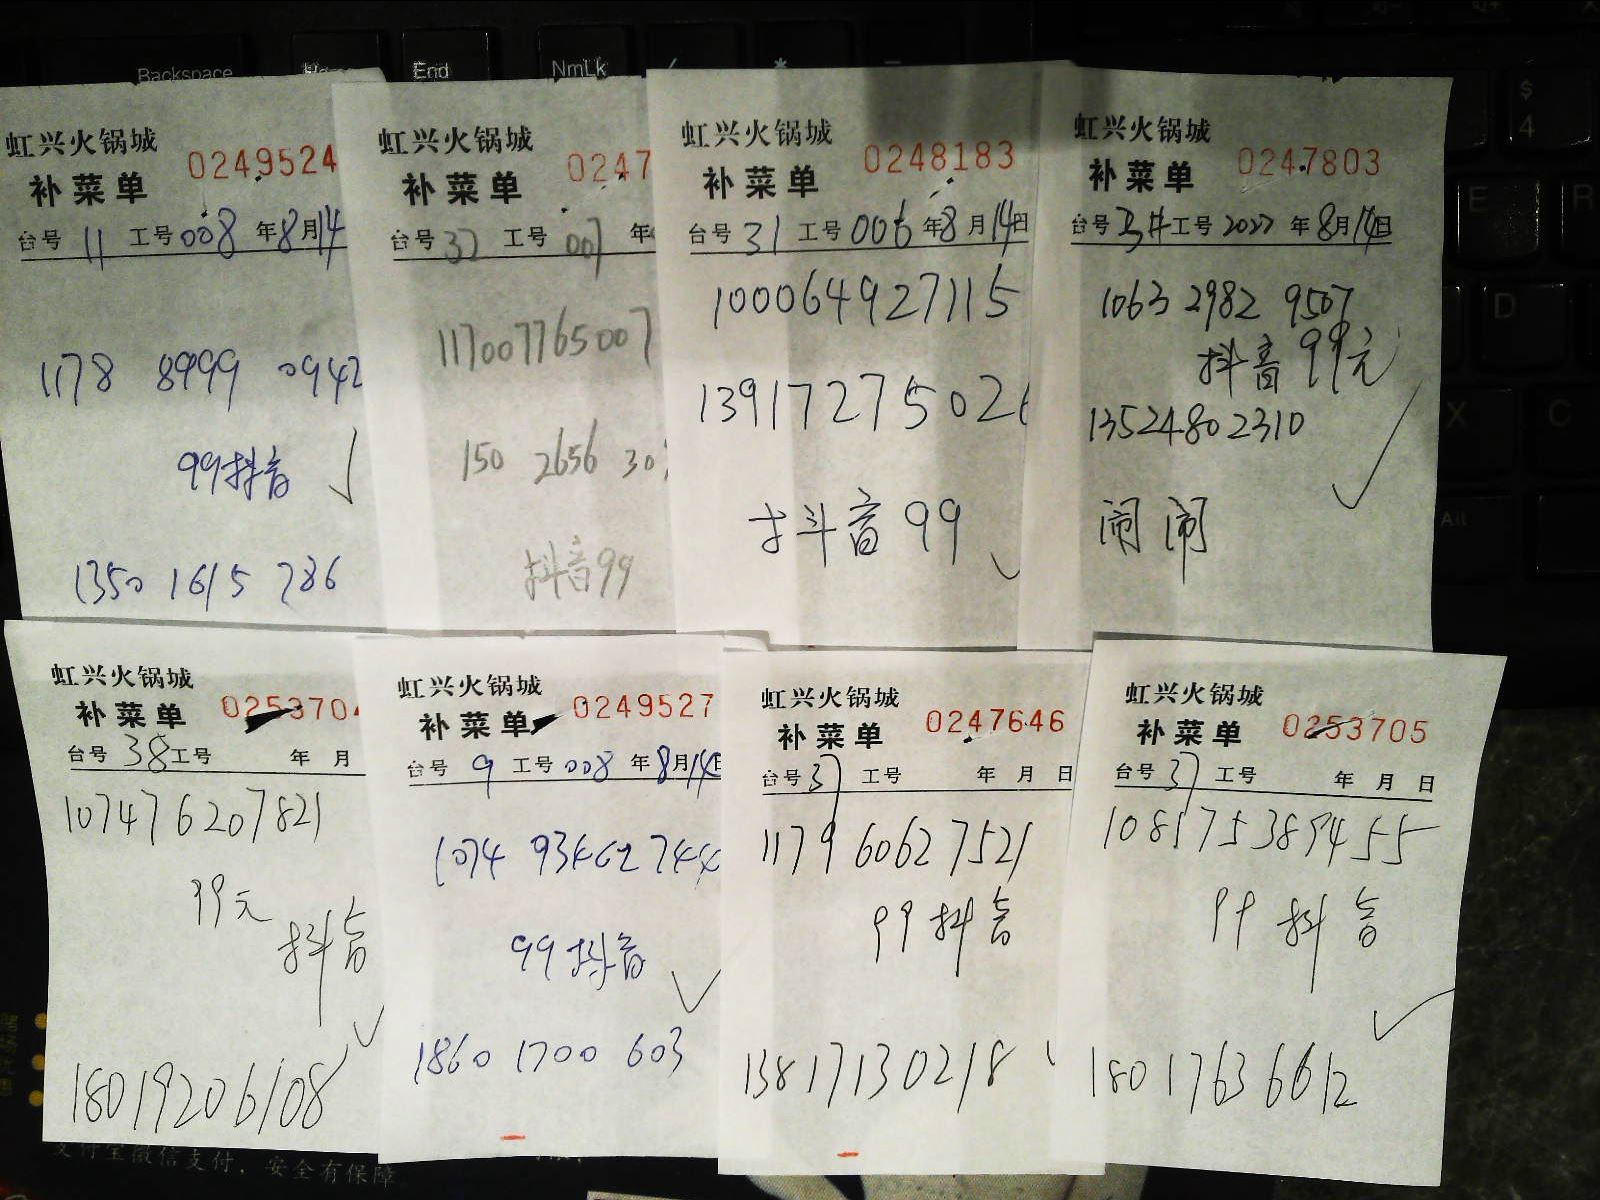 Backspace
End
NmLk
$
4
E
R
D
X
C
Alt
虹兴火锅城
0249524
补菜单
台号 11 工号 008 年 8月14
1178 8999 0942
99抖音
1350 1615 786
虹兴火锅城
0247
补菜单
台号 37 工号 007 年
117007765007
150 2656 30
抖音99
虹兴火锅城
0248183
补菜单
台号 31 工号 006 年8月14日
100064927115
1391727502
抖音 99
虹兴火锅城
0247803
补菜单
台号 工号 2027 年 8月14日
1063 2982 9507
抖音 99元
13524802310
闹闹
虹兴火锅城
025370
补菜单
台号 38 工号 年 月
107476207821
99元
抖音
18019206108
虹兴火锅城
0249527
补菜单
台号 9 工号 008 年 8月14日
1074
99抖音
1860 1700 603
虹兴火锅城
0247646
补菜单
台号 37 工号 年 月 日
1179 6062 7521
99 抖音
13817130218
虹兴火锅城
0253705
补菜单
台号 37 工号 年 月 日
108175389455
99 抖音
18017636612
支付宝微信支付，安全有保障